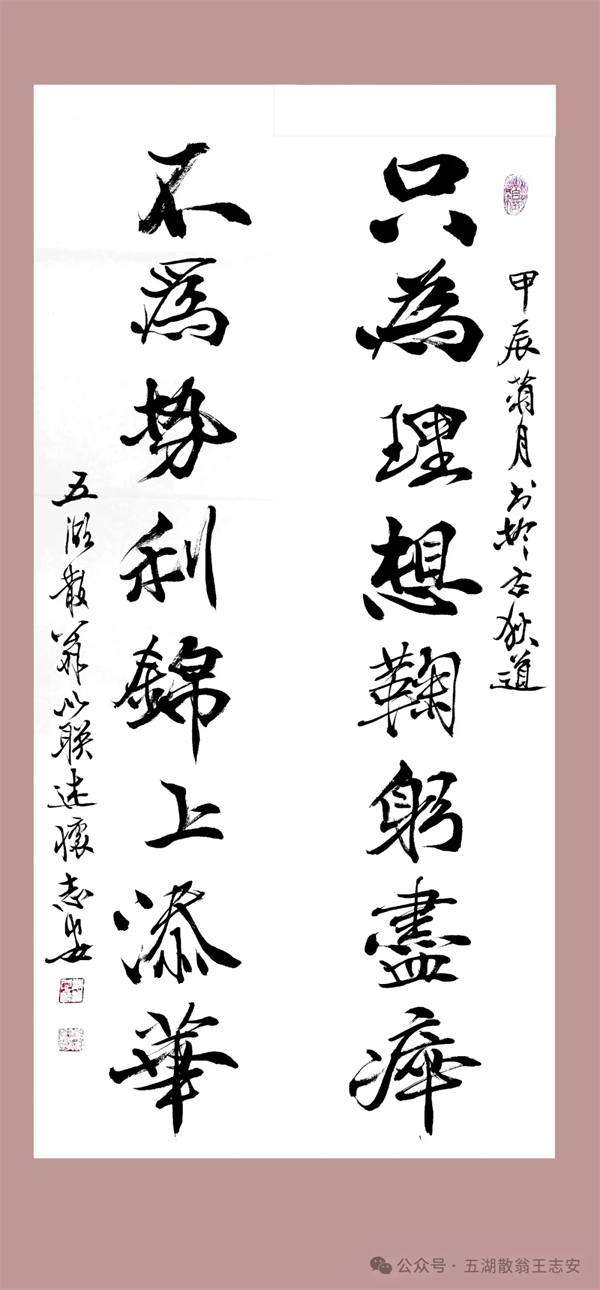 甲辰月书於古狄道
只為理想鞠躬盡瘁
不為勢利錦上添華
五湖散翁以联述懷志安
公众号 · 五湖散翁王志安